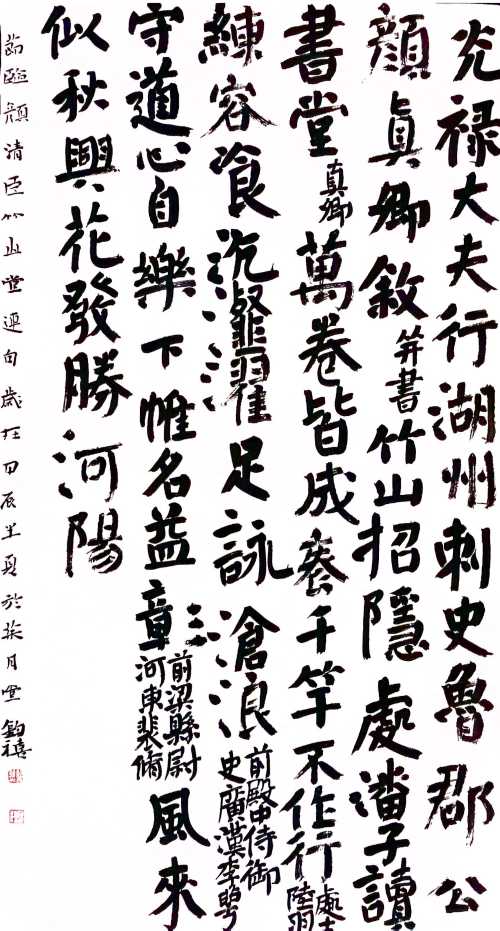 光祿大夫行湖州刺史魯郡公
顏眞卿敘并書竹山招隱處潘子讀
書堂真卿萬卷皆成袠千竿不作行處士陸羽
練容飡沆瀣濯足詠滄浪前殿中侍御史廣漢李萼
守道心自樂下帷名益彰前梁縣尉河東裴脩風來
似秋興花發勝河陽
節臨顏清臣竹山堂連句歲在甲辰夏於月堂